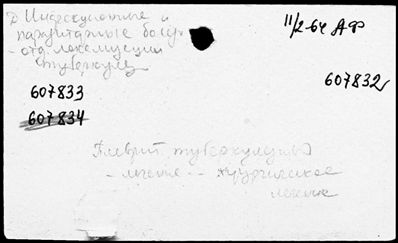 Инфекционные и
паразитарные
Туберкулез
11/2-64 АФ
607832
607833
607834
Плеврит туберкулезный
- лечение -- хирургическое
лечение